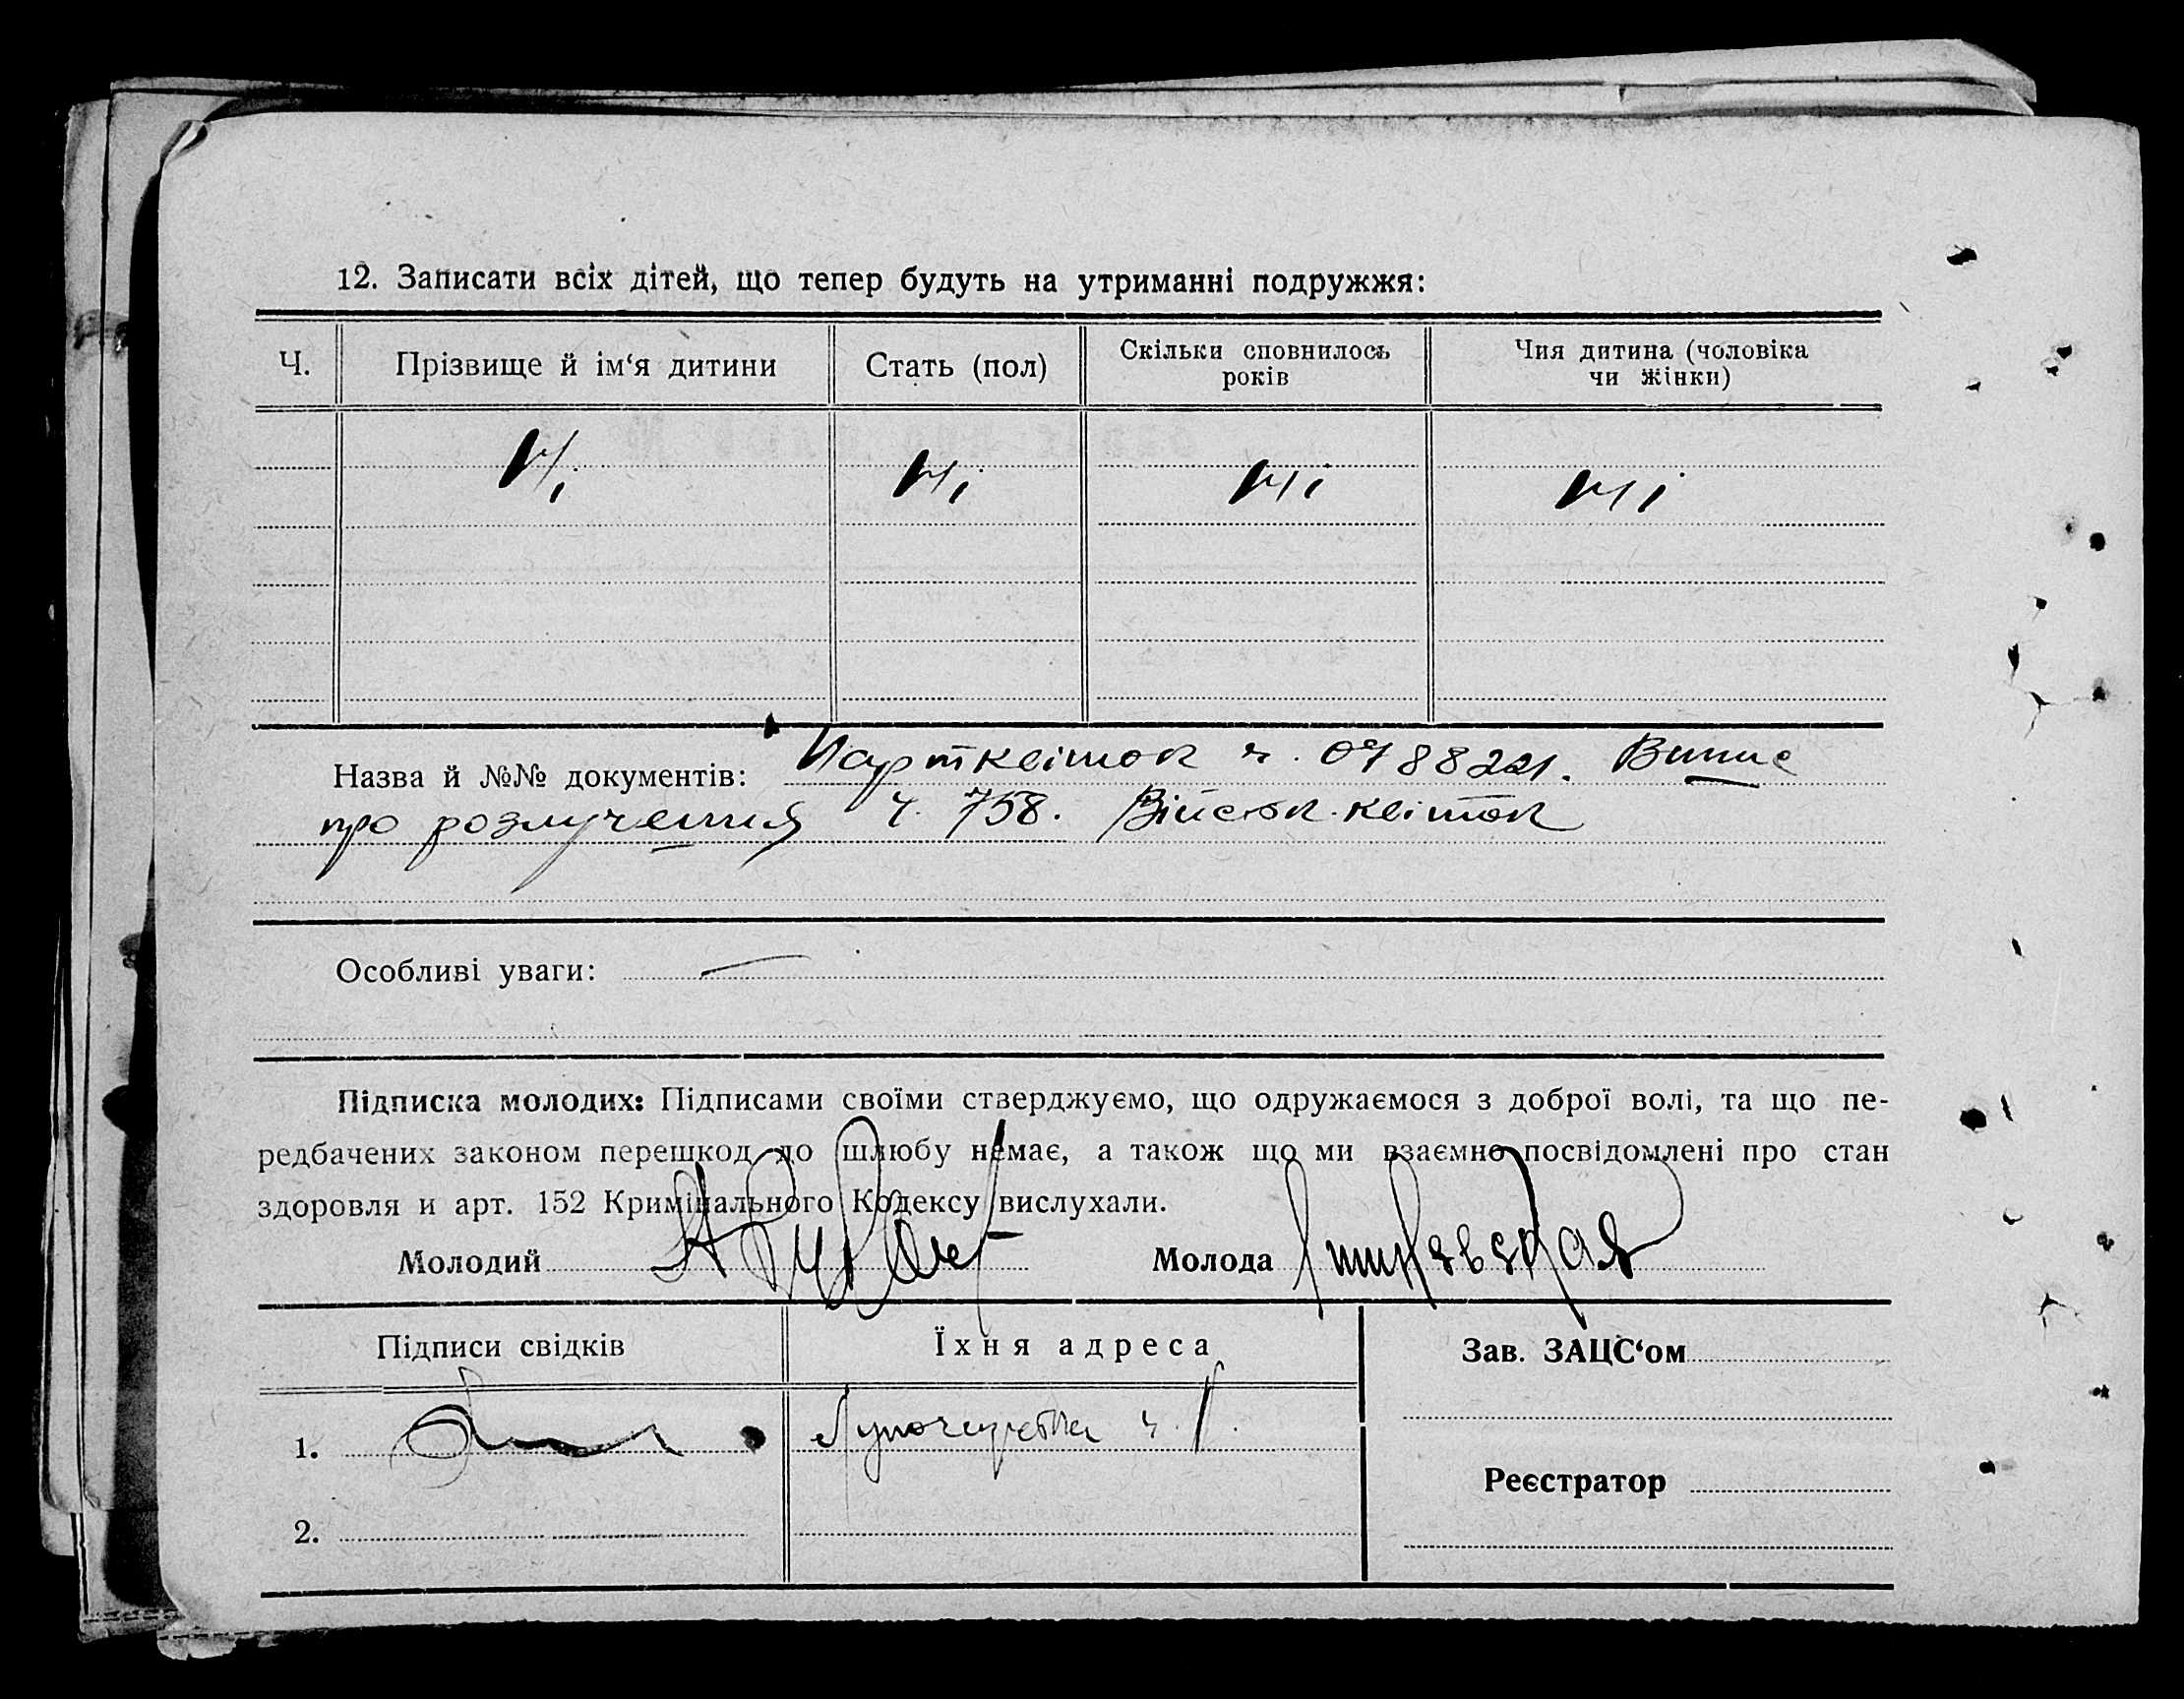 12. Записати всіх дітей, що тепер будуть на утриманні подружжя:
Ч. Прізвище й ім‘я дитини Стать (пол) Скільки сповнилось років Чия дитина (чоловіка чи жінки)
Ні Ні Ні Ні
Назва й №№ документів: Партквіток ч. 0788221. Випис
про розлучення ч. 758. Військ. квіток
Особливі уваги: —
Підписка молодих: Підписами своїми стверджуємо, що одружаємося з доброї волі, та що пе-
редбачених законом перешкод до шлюбу немає, а також що ми взаємно посвідомлені про стан
здоровля и арт. 152 Кримінального Кодексу вислухали.
Молодий Молода
Підписи свідків Їхня адреса Зав. ЗАЦС‘ом
1. ч. 1.
Реєстратор
2.